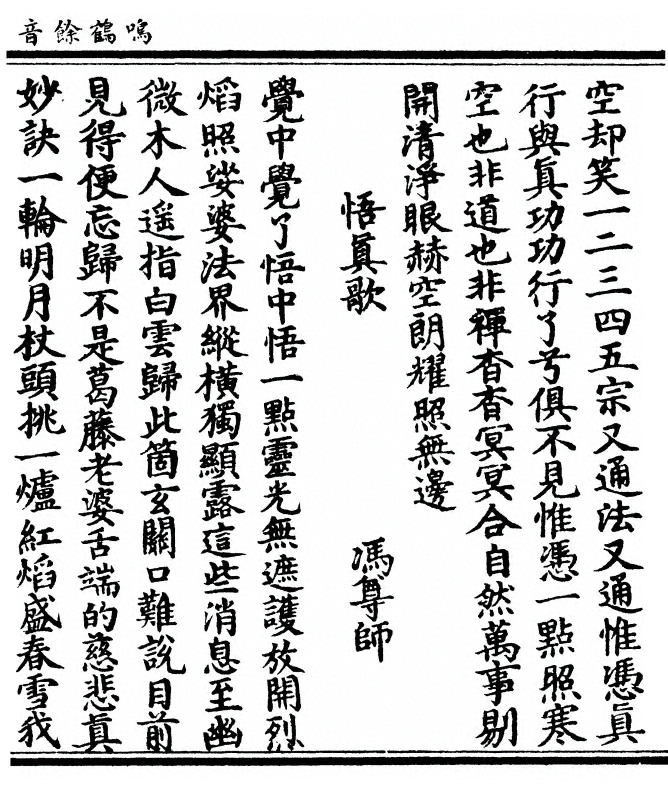 鳴鶴餘音
空却笑一二三四五宗又通法又通惟憑眞
行與眞功功行了兮俱不見惟憑一點照寒
空也非道也非禪杳杳冥冥合自然萬事剔
開清淨眼赫空朗耀照無邊
悟眞歌
馮尊師
覺中覺了悟中悟一點靈光無遮護放開烈
焰照娑婆法界縱橫獨顯露這些消息至幽
微木人遥指白雲歸此箇玄關口難說目前
見得便忘歸不是葛藤老婆舌端的慈悲眞
妙訣一輪明月杖頭挑一爐紅焰盛春雪我